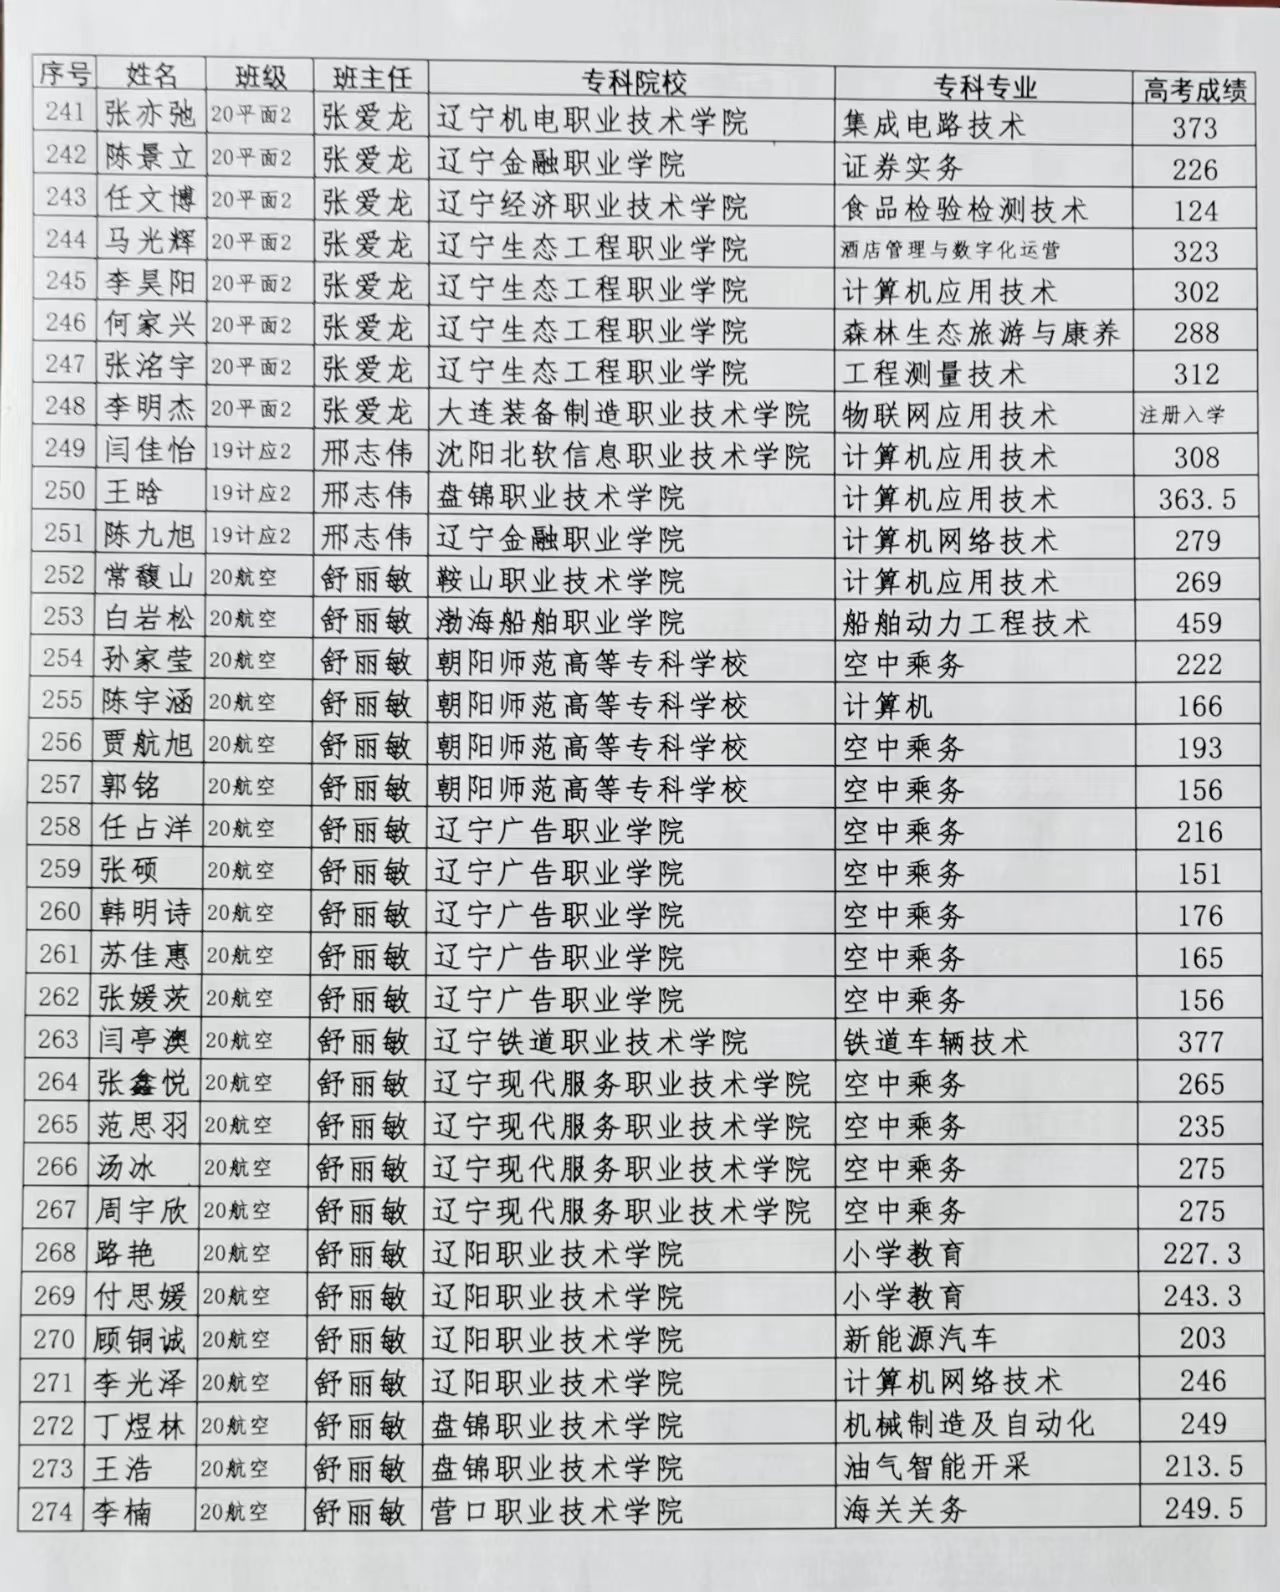 序号 姓名 班级 班主任 专科院校 专科专业 高考成绩
241 张亦弛 20平面2 张爱龙 辽宁机电职业技术学院 集成电路技术 373
242 陈景立 20平面2 张爱龙 辽宁金融职业学院 证券实务 226
243 任文博 20平面2 张爱龙 辽宁经济职业技术学院 食品检验检测技术 124
244 马光辉 20平面2 张爱龙 辽宁生态工程职业学院 酒店管理与数字化运营 323
245 李昊阳 20平面2 张爱龙 辽宁生态工程职业学院 计算机应用技术 302
246 何家兴 20平面2 张爱龙 辽宁生态工程职业学院 森林生态旅游与康养 288
247 张洺宇 20平面2 张爱龙 辽宁生态工程职业学院 工程测量技术 312
248 李明杰 20平面2 张爱龙 大连装备制造职业技术学院 物联网应用技术 注册入学
249 闫佳怡 19计应2 邢志伟 沈阳北软信息职业技术学院 计算机应用技术 308
250 王晗 19计应2 邢志伟 盘锦职业技术学院 计算机应用技术 363.5
251 陈九旭 19计应2 邢志伟 辽宁金融职业学院 计算机网络技术 279
252 常馥山 20航空 舒丽敏 鞍山职业技术学院 计算机应用技术 269
253 白岩松 20航空 舒丽敏 渤海船舶职业学院 船舶动力工程技术 459
254 孙家莹 20航空 舒丽敏 朝阳师范高等专科学校 空中乘务 222
255 陈宇涵 20航空 舒丽敏 朝阳师范高等专科学校 计算机 166
256 贾航旭 20航空 舒丽敏 朝阳师范高等专科学校 空中乘务 193
257 郭铭 20航空 舒丽敏 朝阳师范高等专科学校 空中乘务 156
258 任占洋 20航空 舒丽敏 辽宁广告职业学院 空中乘务 216
259 张硕 20航空 舒丽敏 辽宁广告职业学院 空中乘务 151
260 韩明诗 20航空 舒丽敏 辽宁广告职业学院 空中乘务 176
261 苏佳惠 20航空 舒丽敏 辽宁广告职业学院 空中乘务 165
262 张媛茨 20航空 舒丽敏 辽宁广告职业学院 空中乘务 156
263 闫亭澳 20航空 舒丽敏 辽宁铁道职业技术学院 铁道车辆技术 377
264 张鑫悦 20航空 舒丽敏 辽宁现代服务职业技术学院 空中乘务 265
265 范思羽 20航空 舒丽敏 辽宁现代服务职业技术学院 空中乘务 235
266 汤冰 20航空 舒丽敏 辽宁现代服务职业技术学院 空中乘务 275
267 周宇欣 20航空 舒丽敏 辽宁现代服务职业技术学院 空中乘务 275
268 路艳 20航空 舒丽敏 辽阳职业技术学院 小学教育 227.3
269 付思媛 20航空 舒丽敏 辽阳职业技术学院 小学教育 243.3
270 顾铜诚 20航空 舒丽敏 辽阳职业技术学院 新能源汽车 203
271 李光泽 20航空 舒丽敏 辽阳职业技术学院 计算机网络技术 246
272 丁煜林 20航空 舒丽敏 盘锦职业技术学院 机械制造及自动化 249
273 王浩 20航空 舒丽敏 盘锦职业技术学院 油气智能开采 213.5
274 李楠 20航空 舒丽敏 营口职业技术学院 海关关务 249.5